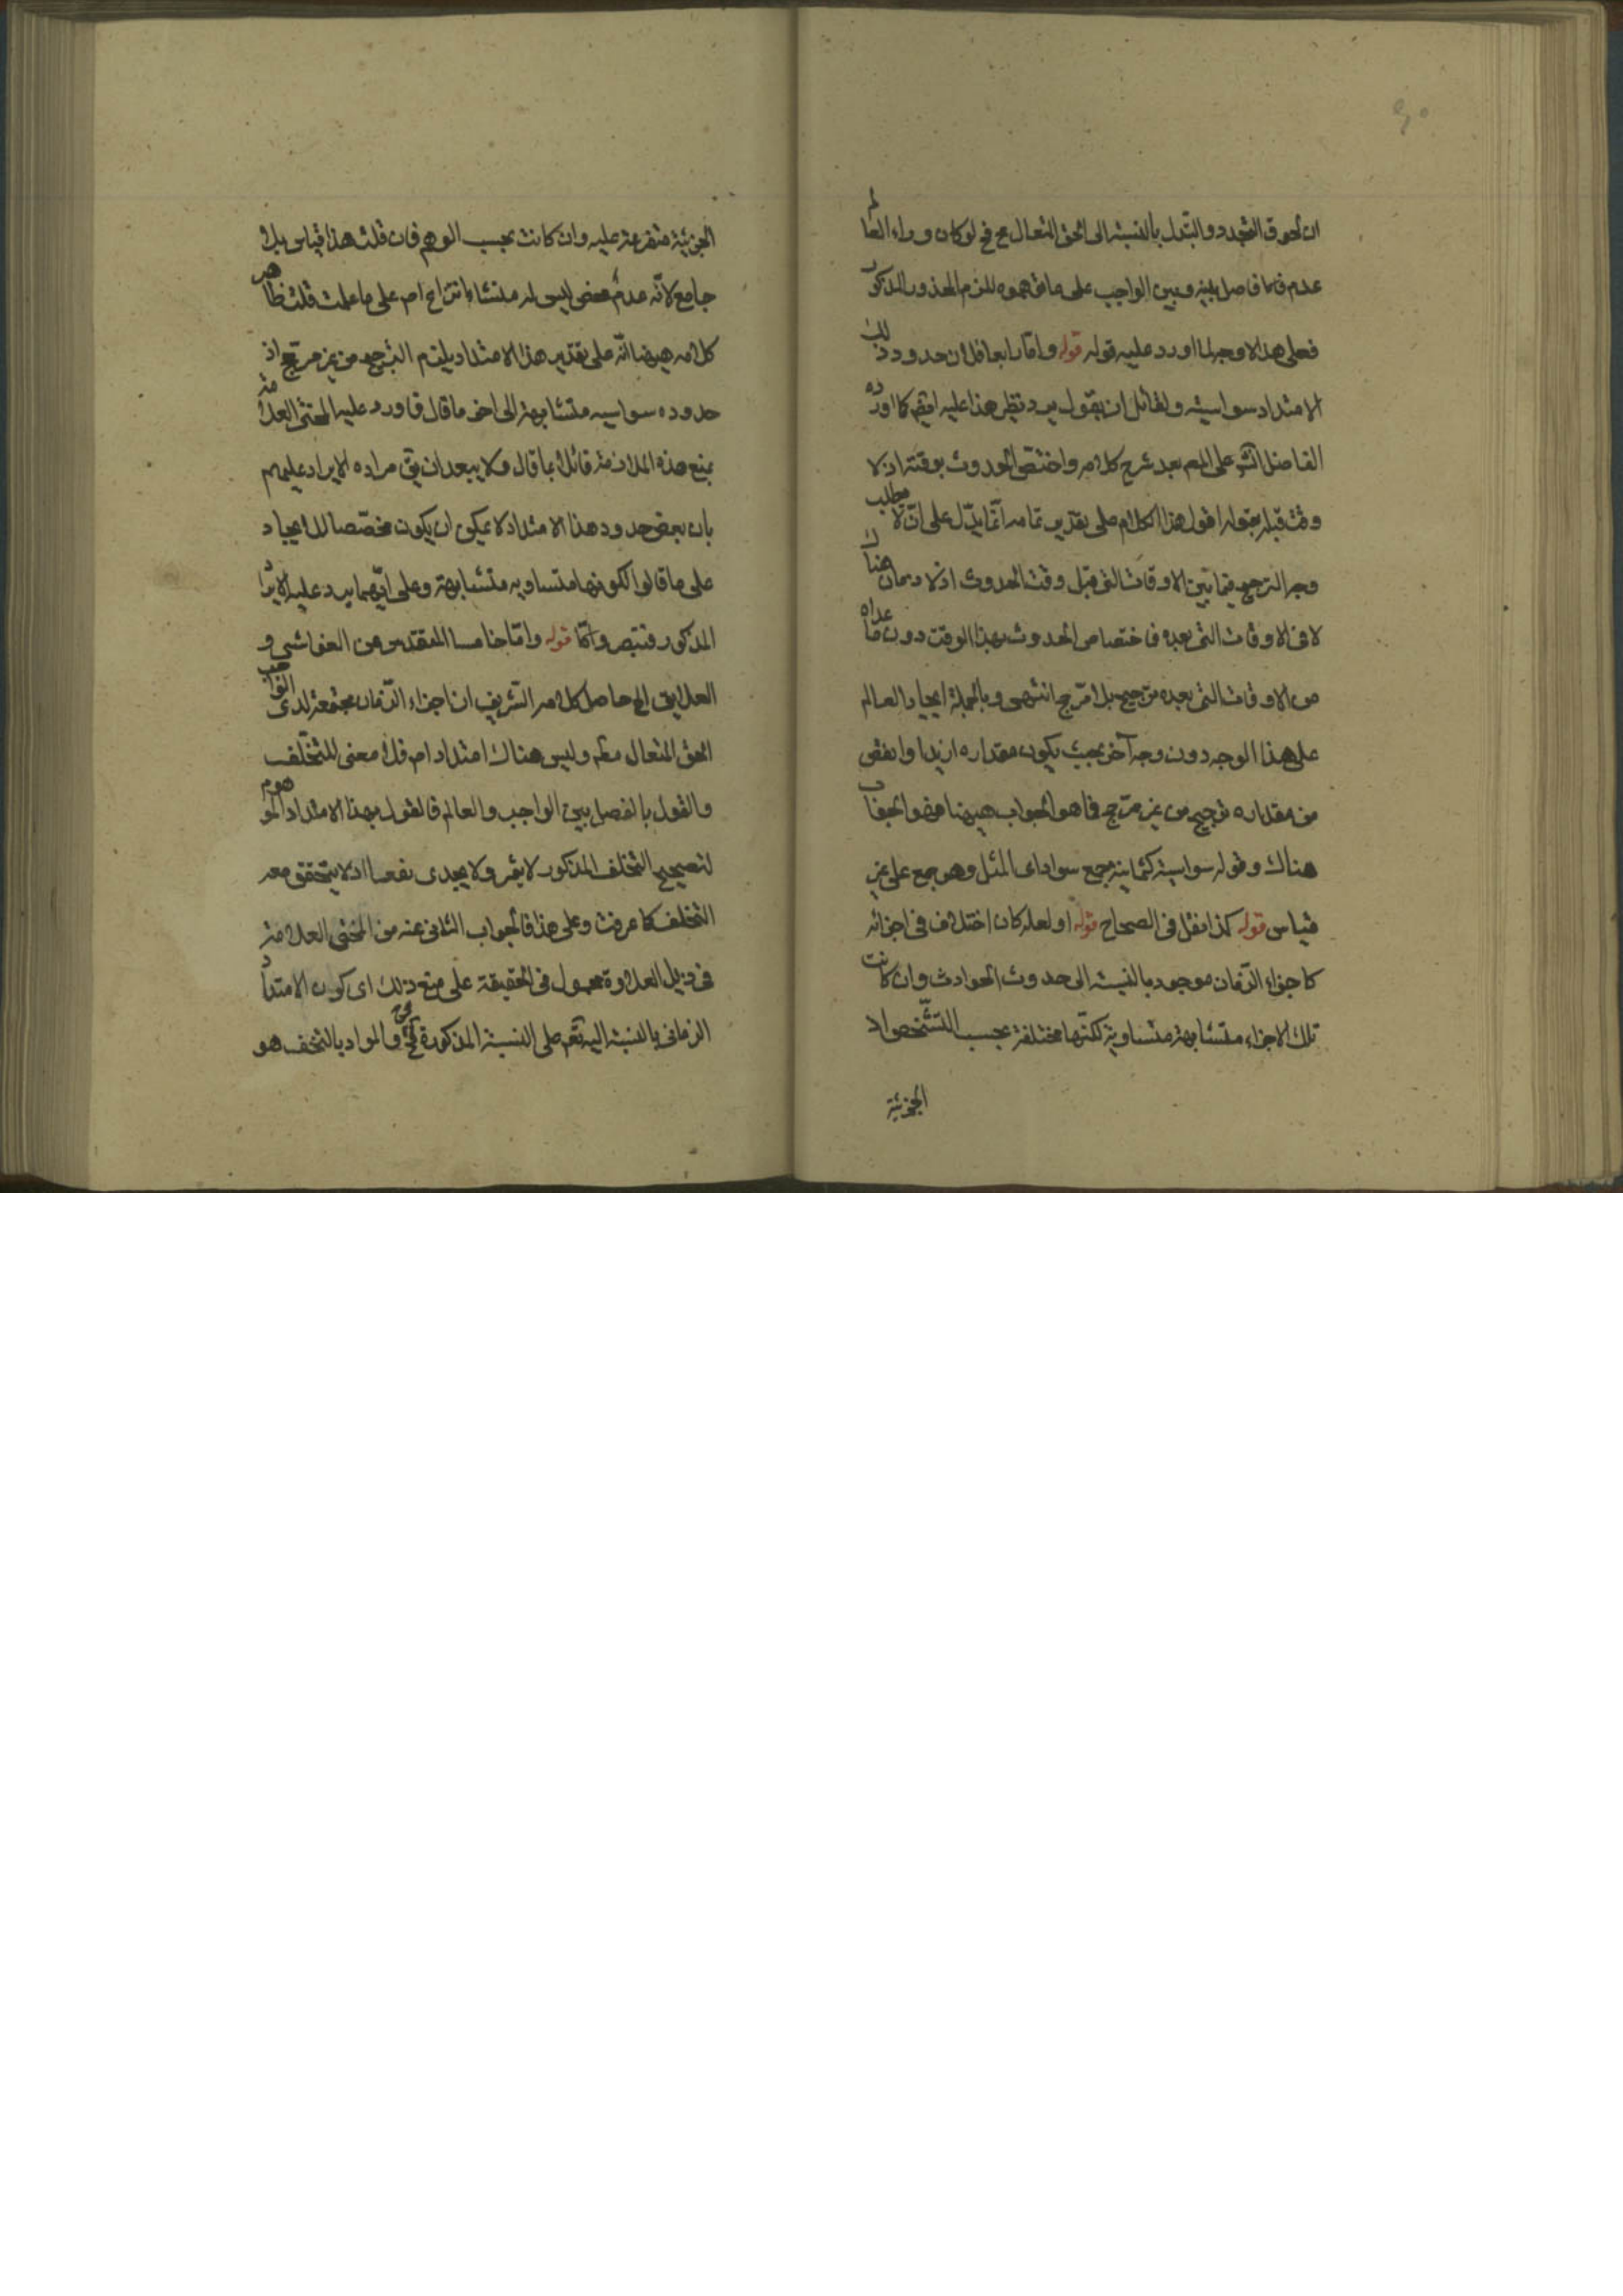 ان لحوق التجدد والتبدل بالنسبة الى الحق المتعال مح فح لو كان وراء العالم
عدم فاصل بينه وبين الواجب على ما توهموه للزم المحذور المذكور
فعلى هذا لا وجه لما اورد عليه قوله قوله واما رابعا فلان حدود ذلك
الامتداد سواسية ولقائل ان يقول يرد نظير هذا عليه ايضا كما اورده
الفاضل على المص بعد شرح كلامه واختص الحدوث بوقته اذ لا
وقت قبله بقوله اقول هذا الكلام على تقدير تمامه انما يدل على ان لا مطلب
وجه الترجيح فيما بين الاوقات التى قبل وقت الحدوث اذ لا زمان هناك
لا فى الاوقات التى بعده فاختصاص الحدوث بهذا الوقت دون ما عداه
من الاوقات التى بعده ترجيح بلا مرجح انتهى وبالجملة ايجاد العالم
على هذا الوجه دون وجه آخر بحيث يكون مقداره ازيد او انقص
من مقداره ترجيح من غير مرجح فما هو الجواب ههنا فهو الجواب
هناك وقوله سواسية كثمانية جمع سواء اى المثل وهو جمع على غير
قياس قوله كذا نقل فى الصحاح قوله او لعله كان اختلاف فى اجزائه
كاجزاء الزمان موجود بالنسبة الى حدوث الحوادث وان كانت
تلك الاجزاء متشابهة متساوية لكنها مختلفة بحسب التشخص اذ
الجزئية
الجزئية متفرعة عليه وان كانت بحسب الوهم فان قلت هذا قياس بلا
جامع لانه عدم محض ليس له منشاء انتزاع اصلا على ما علمت قلت ظاهر
كلامه ههنا انه على تقدير هذا الامتداد يلزم الترجيح من غير مرجح اذ
حدوده سواسيه متشابهة الى اخر ما قال فاورد عليه المحشى العلامة
بمنع هذه الملازمة قائلا بما قال ولا يبعد ان يق مراده الايراد عليهم
بان بعض حدود هذا الامتداد لا يمكن ان يكون مخصصا للايجاد
على ما قالوا لكونها متساويه متشابهة وعلى ايهما يرد عليه الايراد
المذكور فتبصر قوله واما خامسا المتقدس عن الغواشى و
العلايق الخ حاصل كلامه الشريف ان اجزاء الزمان مجتمعة لدى
الحق المتعال وليس هناك امتداد اصلا فلا معنى للتخلف
والقول بالفصل بين الواجب والعالم فالقول بهذا الامتداد الموهوم
لتصحيح التخلف المذكور لا يثمر ولا يجدى نفعا اذ لا يتحقق معه
التخلف كما عرفت وعلى هذا فالجواب الثانى عنه من المحشى العلامة
فى ذيل العلاوة محمول فى الحقيقة على منع ذلك اى كون الامتداد
الزمانى بالنسبة اليه تعم على النسبة المذكورة والمراد بالتخلف هو